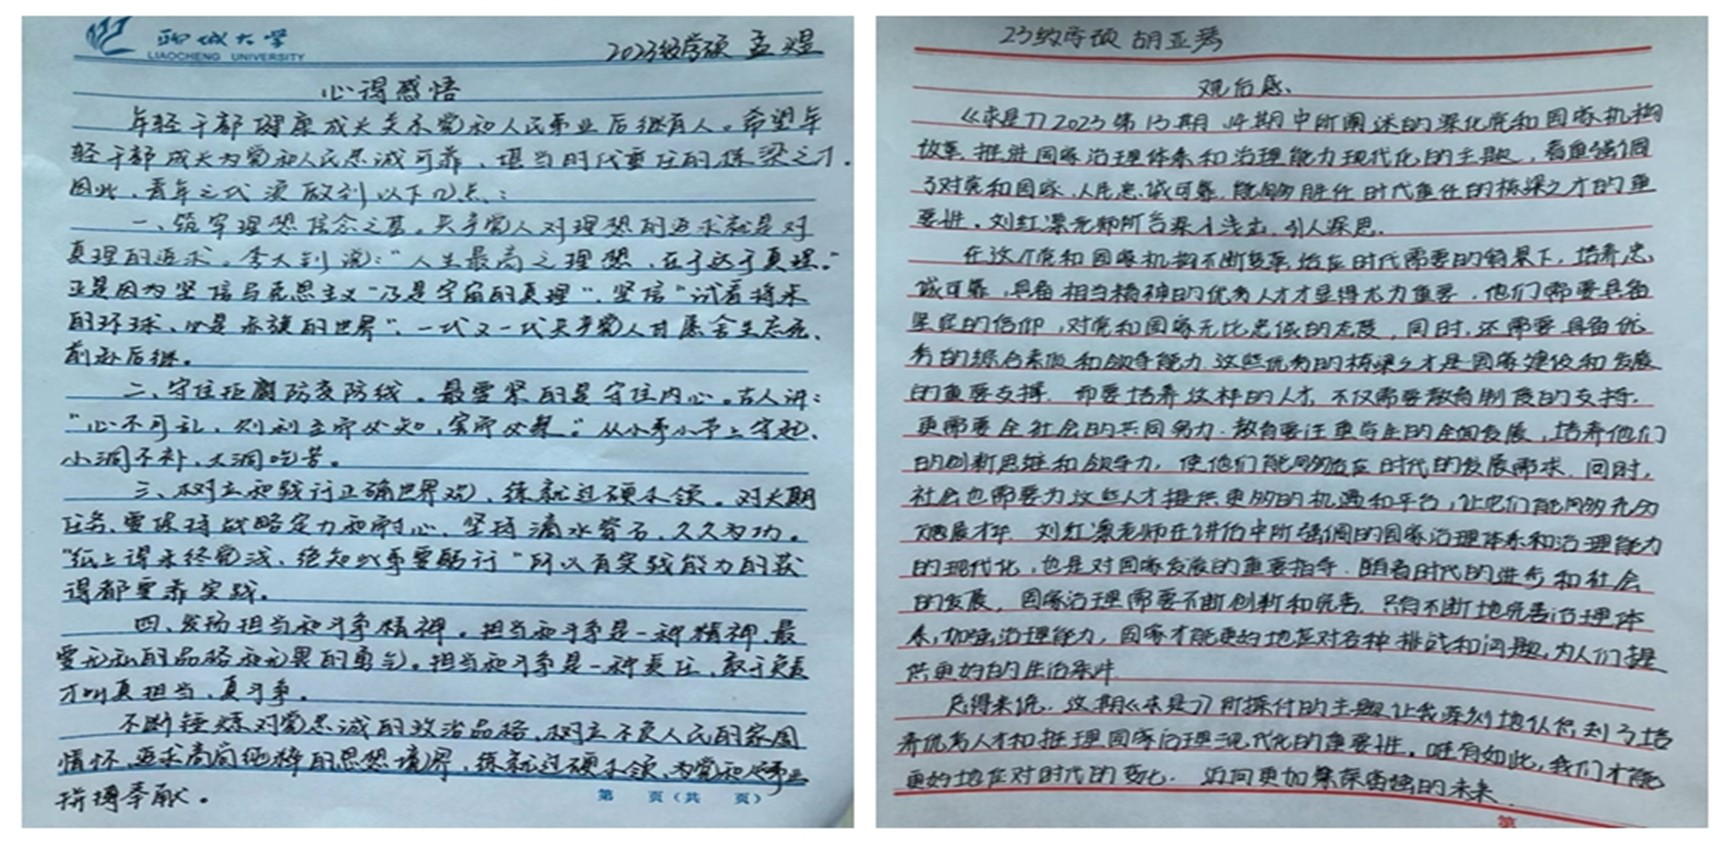 聊城大学
LIAOCHENG UNIVERSITY
2023级学硕 孟煜
心得感悟
年轻干部健康成长关系党和人民事业后继有人。希望年
轻干部成长为党和人民忠诚可靠、堪当时代重任的栋梁之才。
因此,青年之代须做到以下几点:
一、筑牢理想信念之基。共产党人对理想的追求就是对
真理的追求。李大钊说:“人生最高之理想,在于达于真理。”
正是因为坚信马克思主义“乃是宇宙的真理”,坚信“试看将来
的环球、必是赤旗的世界”,一代又一代共产党人甘愿舍生忘死、
前赴后继。
二、守住拒腐防变防线。最要紧的是守住内心。古人讲:
“心不可乱,则利至而必知,害而必察。”从小事小节上守起、
小洞不补,大洞吃苦。
三、树立和践行正确世界观、练就过硬本领。对长期
任务,要保持战略定力和耐心,坚持滴水穿石,久久为功。
“纸上得来终觉浅,绝知此事要躬行”所以有实践能力的获
得都要靠实践。
四、发扬担当和斗争精神。担当和斗争是一种精神、最
要无私的品格和无畏的勇气。担当和斗争是一种责任,敢于负责
才叫真担当、真斗争。
不断锤炼对党忠诚的政治品格,树立不负人民的家国
情怀,追求高尚纯粹的思想境界,练就过硬本领,为党和人民事业
拼搏奉献。
第 页(共 页)
23级学硕 胡亚琴
观后感、
《求是》刀2023第13期、14期中所阐述的深化党和国家机构
改革,推进国家治理体系和治理能力现代化的主题,着重强调
了对党和国家、人民忠诚可靠,能够胜任时代重任的栋梁之才的重
要性。刘红凛老师所言深入浅出,引人深思.
在这个党和国家机构不断变革,站在时代需要的背景下,培养忠
诚可靠,具备相当精神的优秀人才才显得尤为重要,他们需要具备
坚定的信仰,对党和国家无比忠诚的态度,同时,还需要具备优
秀的综合素质和领导能力,这些优秀的栋梁之才是国家建设和发展
的重要支撑.而要培养这样的人才,不仅需要教育制度的支持,
更需要全社会的共同努力.教育要注重学生的全面发展,培养他们
的创新思维和领导力,使他们能够站在时代的发展需求.同时,
社会也需要为这些人才提供更多的机遇和平台,让它们能够充分
施展才华.刘红凛老师在讲话中所强调的国家治理体系和治理能力
的现代化,也是对国家发展的重要指导.随着时代的进步和社会
的发展,国家治理需要不断创新和完善,只有不断地完善治理体
系,加强治理能力,国家才能更好地应对各种挑战和问题,为人们提
供更好的生活条件.
总得来说,这期《求是》刀所探讨的主题,让我深刻地认识到了培
养优秀人才和推理国家治理现代化的重要性。唯有如此,我们才能
更好地应对时代的变化.迈向更加繁荣富强的未来.
第